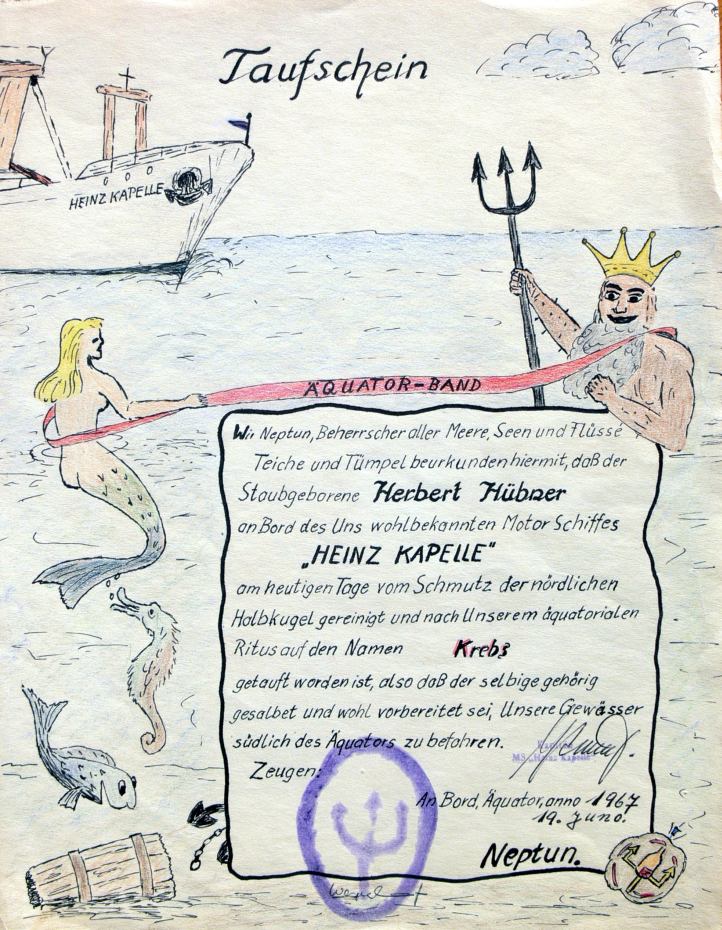 Taufschein
HEINZ KAPELLE
ÄQUATOR-BAND
Wir Neptun, Beherrscher aller Meere, Seen und Flüsse
Teiche und Tümpel beurkunden hiermit, daß der
Staubgeborene Herbert Hübner
an Bord des Uns wohlbekannten Motor Schiffes
„HEINZ KAPELLE“
am heutigen Tage vom Schmutz der nördlichen
Halbkugel gereinigt und nach Unserem äquatorialen
Ritus auf den Namen Krebs
getauft worden ist, also daß der selbige gehörig
gesalbet und wohl vorbereitet sei, Unsere Gewässer
südlich des Äquators zu befahren.
MS „Heinz Kapelle“
Zeugen:
An Bord, Äquator, anno 1967
19. Juno.
Neptun.